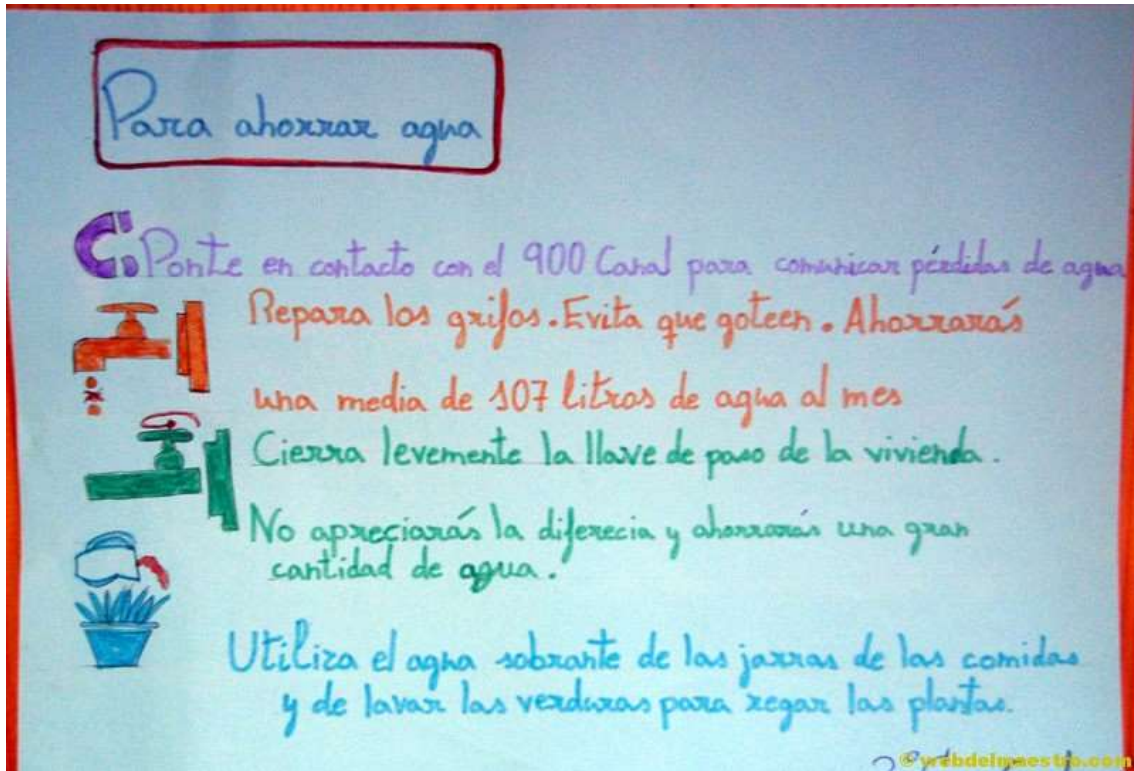 Para ahorrar agua
Ponte en contacto con el 900 Canal para comunicar pérdidas de agua
Repara los grifos. Evita que goteen. Ahorrarás
una media de 107 litros de agua al mes
Cierra levemente la llave de paso de la vivienda.
No apreciarás la diferecia y ahorrarás una gran
cantidad de agua.
Utiliza el agua sobrante de las jarras de las comidas
y de lavar las verduras para regar las plantas.
© webdelmaestro.com